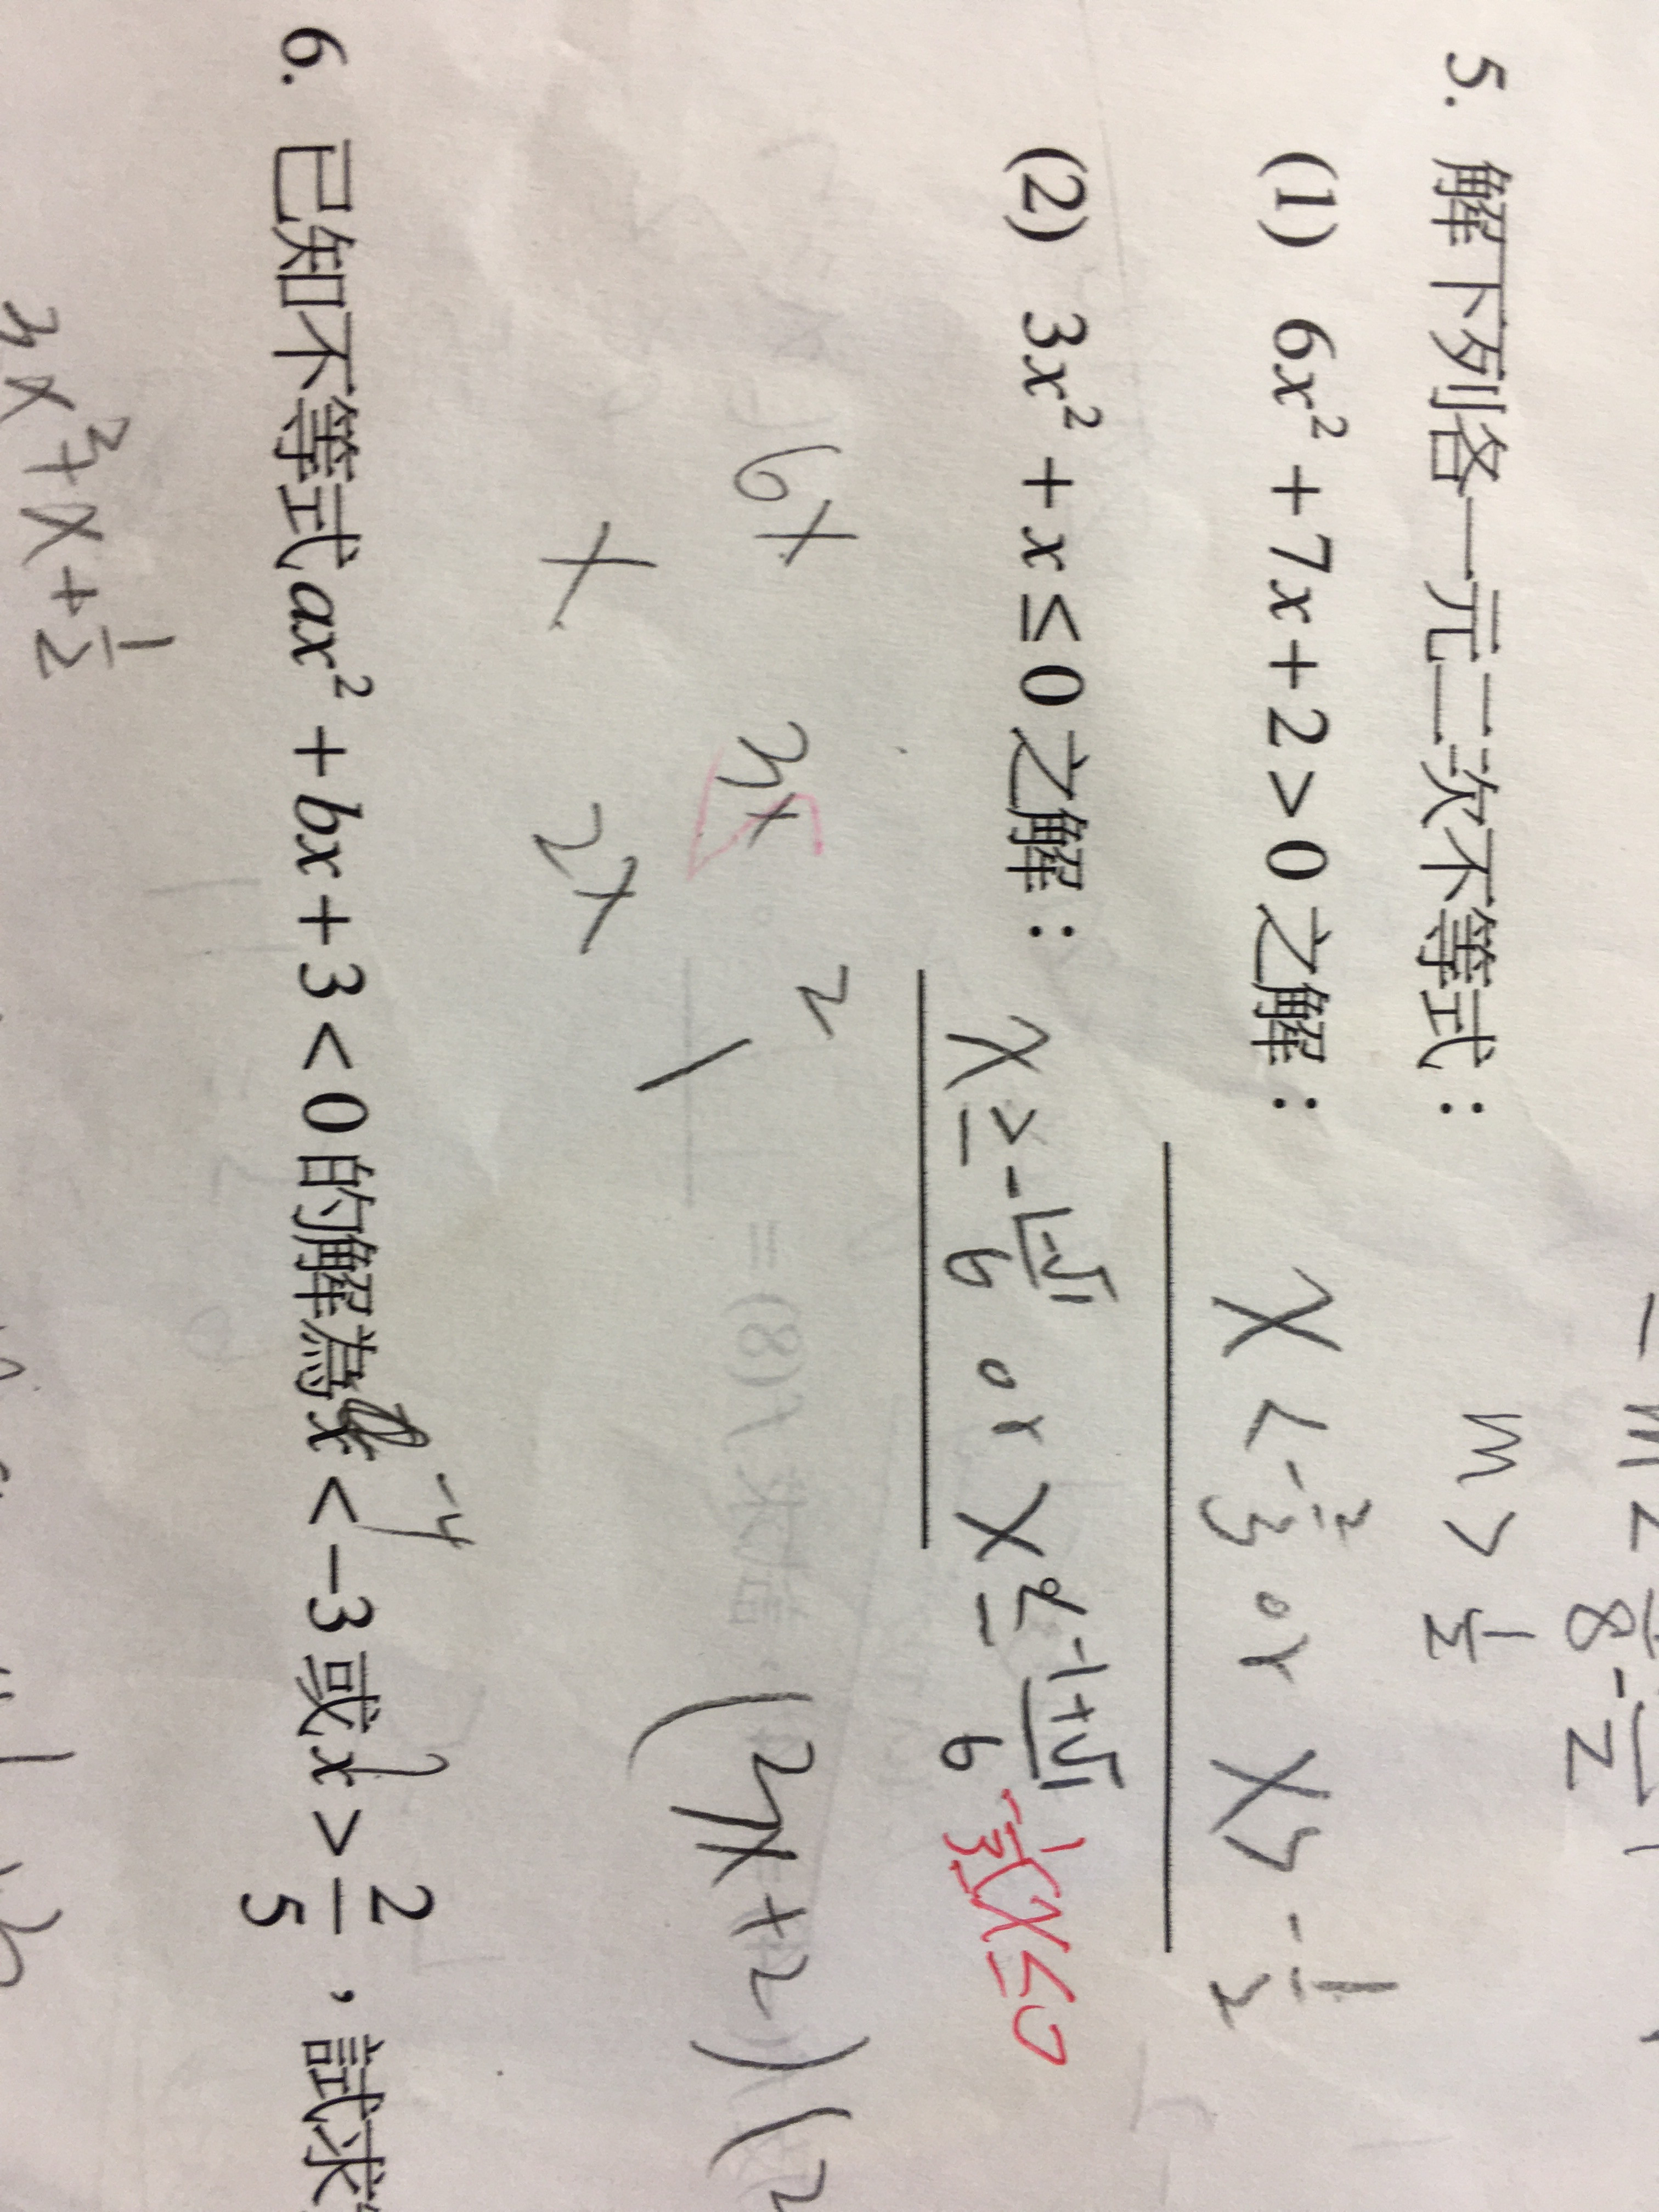 5. 解下列各一元二次不等式：
m > 1/2
(1) 6x² + 7x + 2 > 0 之解： x < -2/3 or x > -1/2
(2) 3x² + x ≤ 0 之解： x ≥ -1-√1/6 or x ≤ -1+√1/6 -1/3≤x≤0
6x 3x 2
x 2x 1
(3x+2)(2
6. 已知不等式 ax² + bx + 3 < 0 的解為 x < -3 或 x > 2/5，試求
3x² + x + 1/2